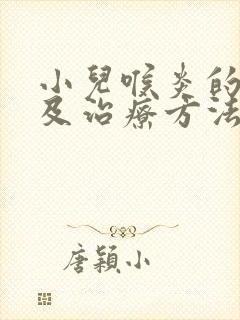 小兒喉炎的
及治療方法
唐穎小